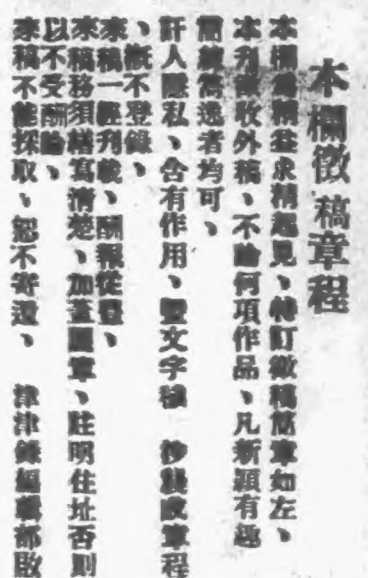 本欄徵稿章程
本欄為精益求精起見、特訂徵稿簡章如左、
本刊徵收外稿、不論何項作品、凡新穎有趣
簡潔雋逸者均可、
訐人隱私、含有作用、暨文字 抄襲 章程
、概不登錄、
來稿一經刊載、酬報從豐、
來稿務須繕寫清楚、加蓋圖章、註明住址否則
以不受酬論、
來稿不能採取、恕不寄還、 津津 編輯部啟